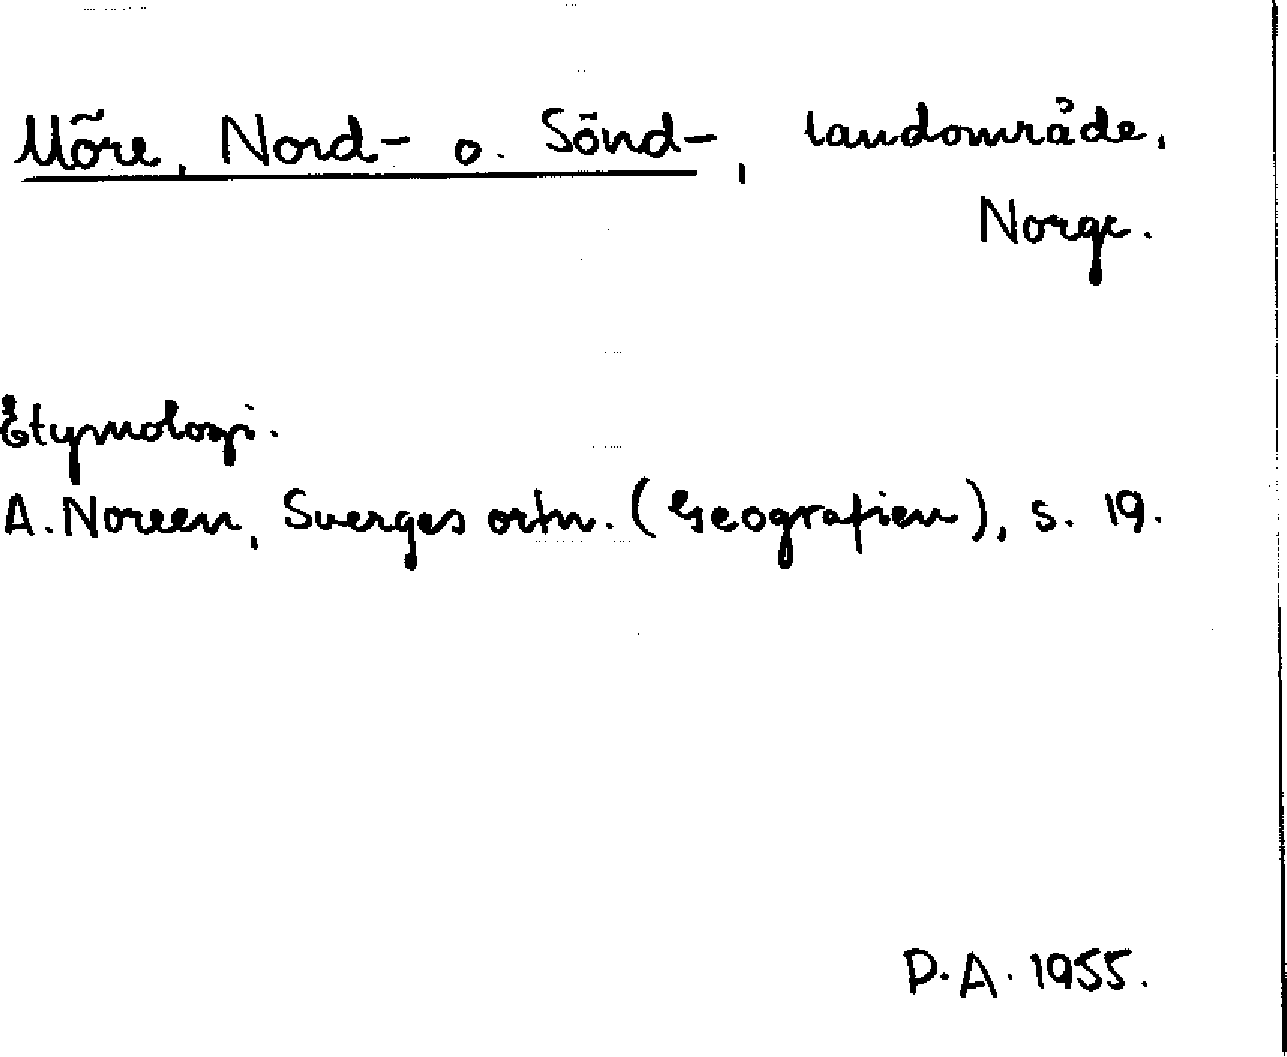 Möre, Nord- o. Sönd-, landområde,
Norge.
Etymologi.
A. Noreen, Sverges ortn. (Geografien), s. 19.
D.A. 1955.